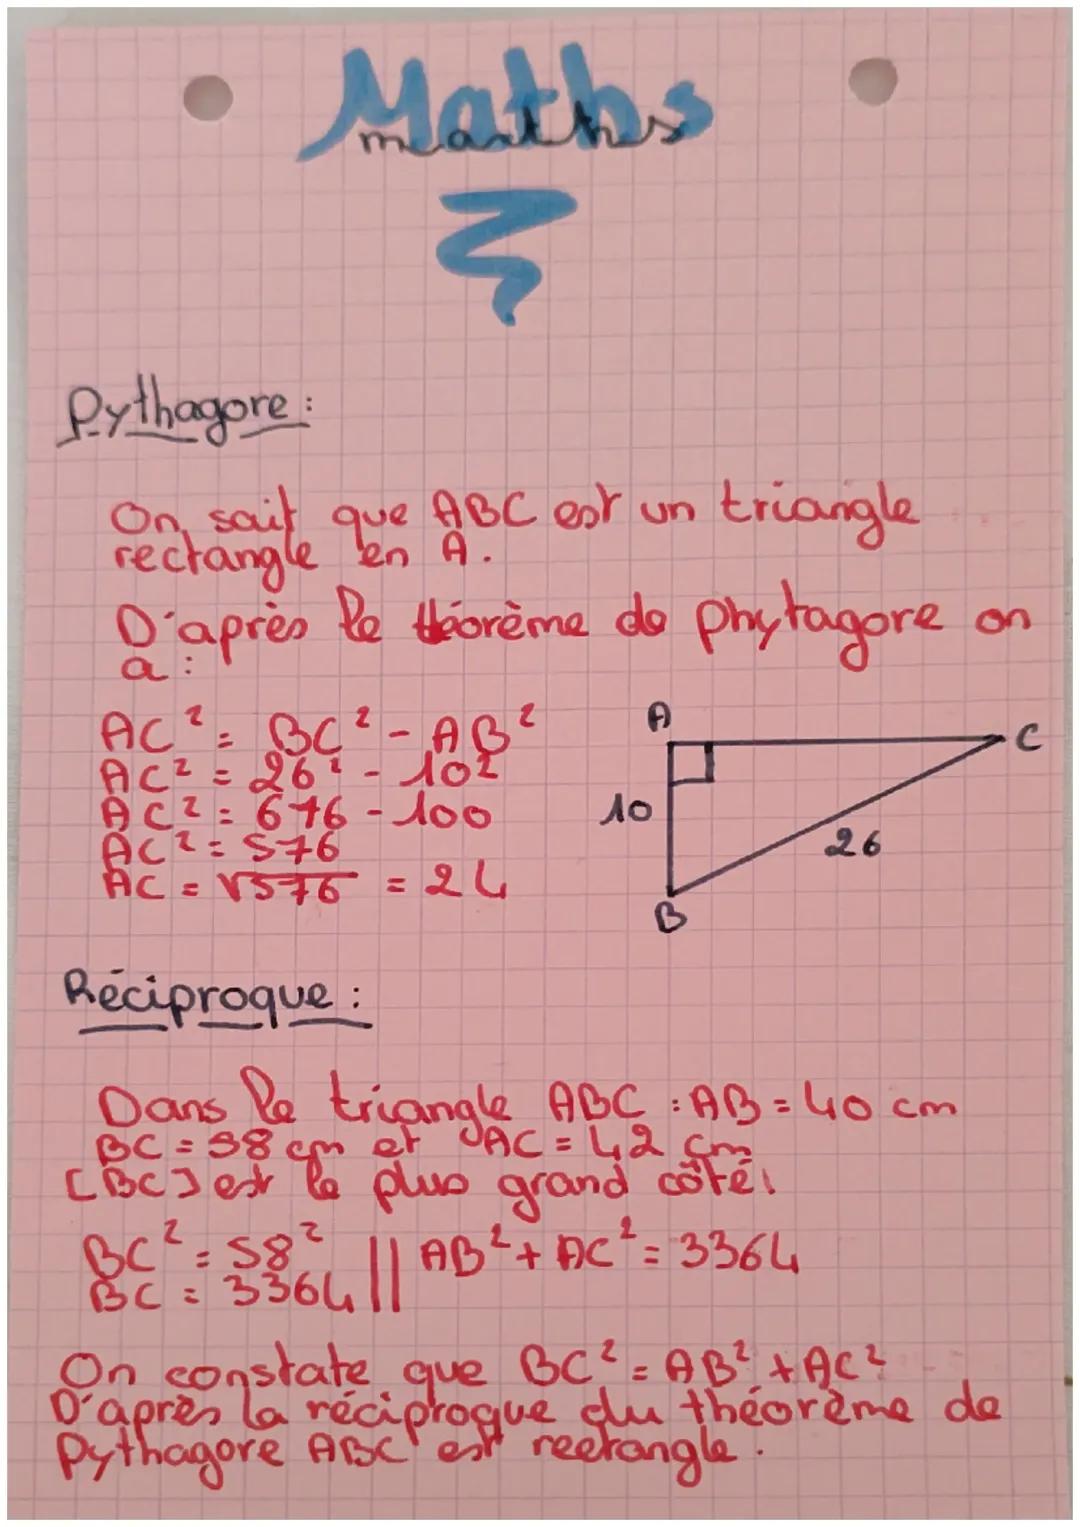 Maths
maths
Pythagore :
On sait que ABC est un triangle
rectangle en A.
D'après le théorème de phytagore on
a :
AC² = BC² - AB²
AC² = 26² - 10²
AC² = 676 - 100
AC² = 576
AC = √576 = 24
A
C
10
26
B
Réciproque :
Dans le triangle ABC : AB = 40 cm
BC = 58 cm et AC = 42 cm
[BC] est le plus grand côté.
BC² = 58² || AB² + AC² = 3364
BC = 3364
On constate que BC² = AB² + AC²
D'après la réciproque du théorème de
Pythagore ABC est rectangle.